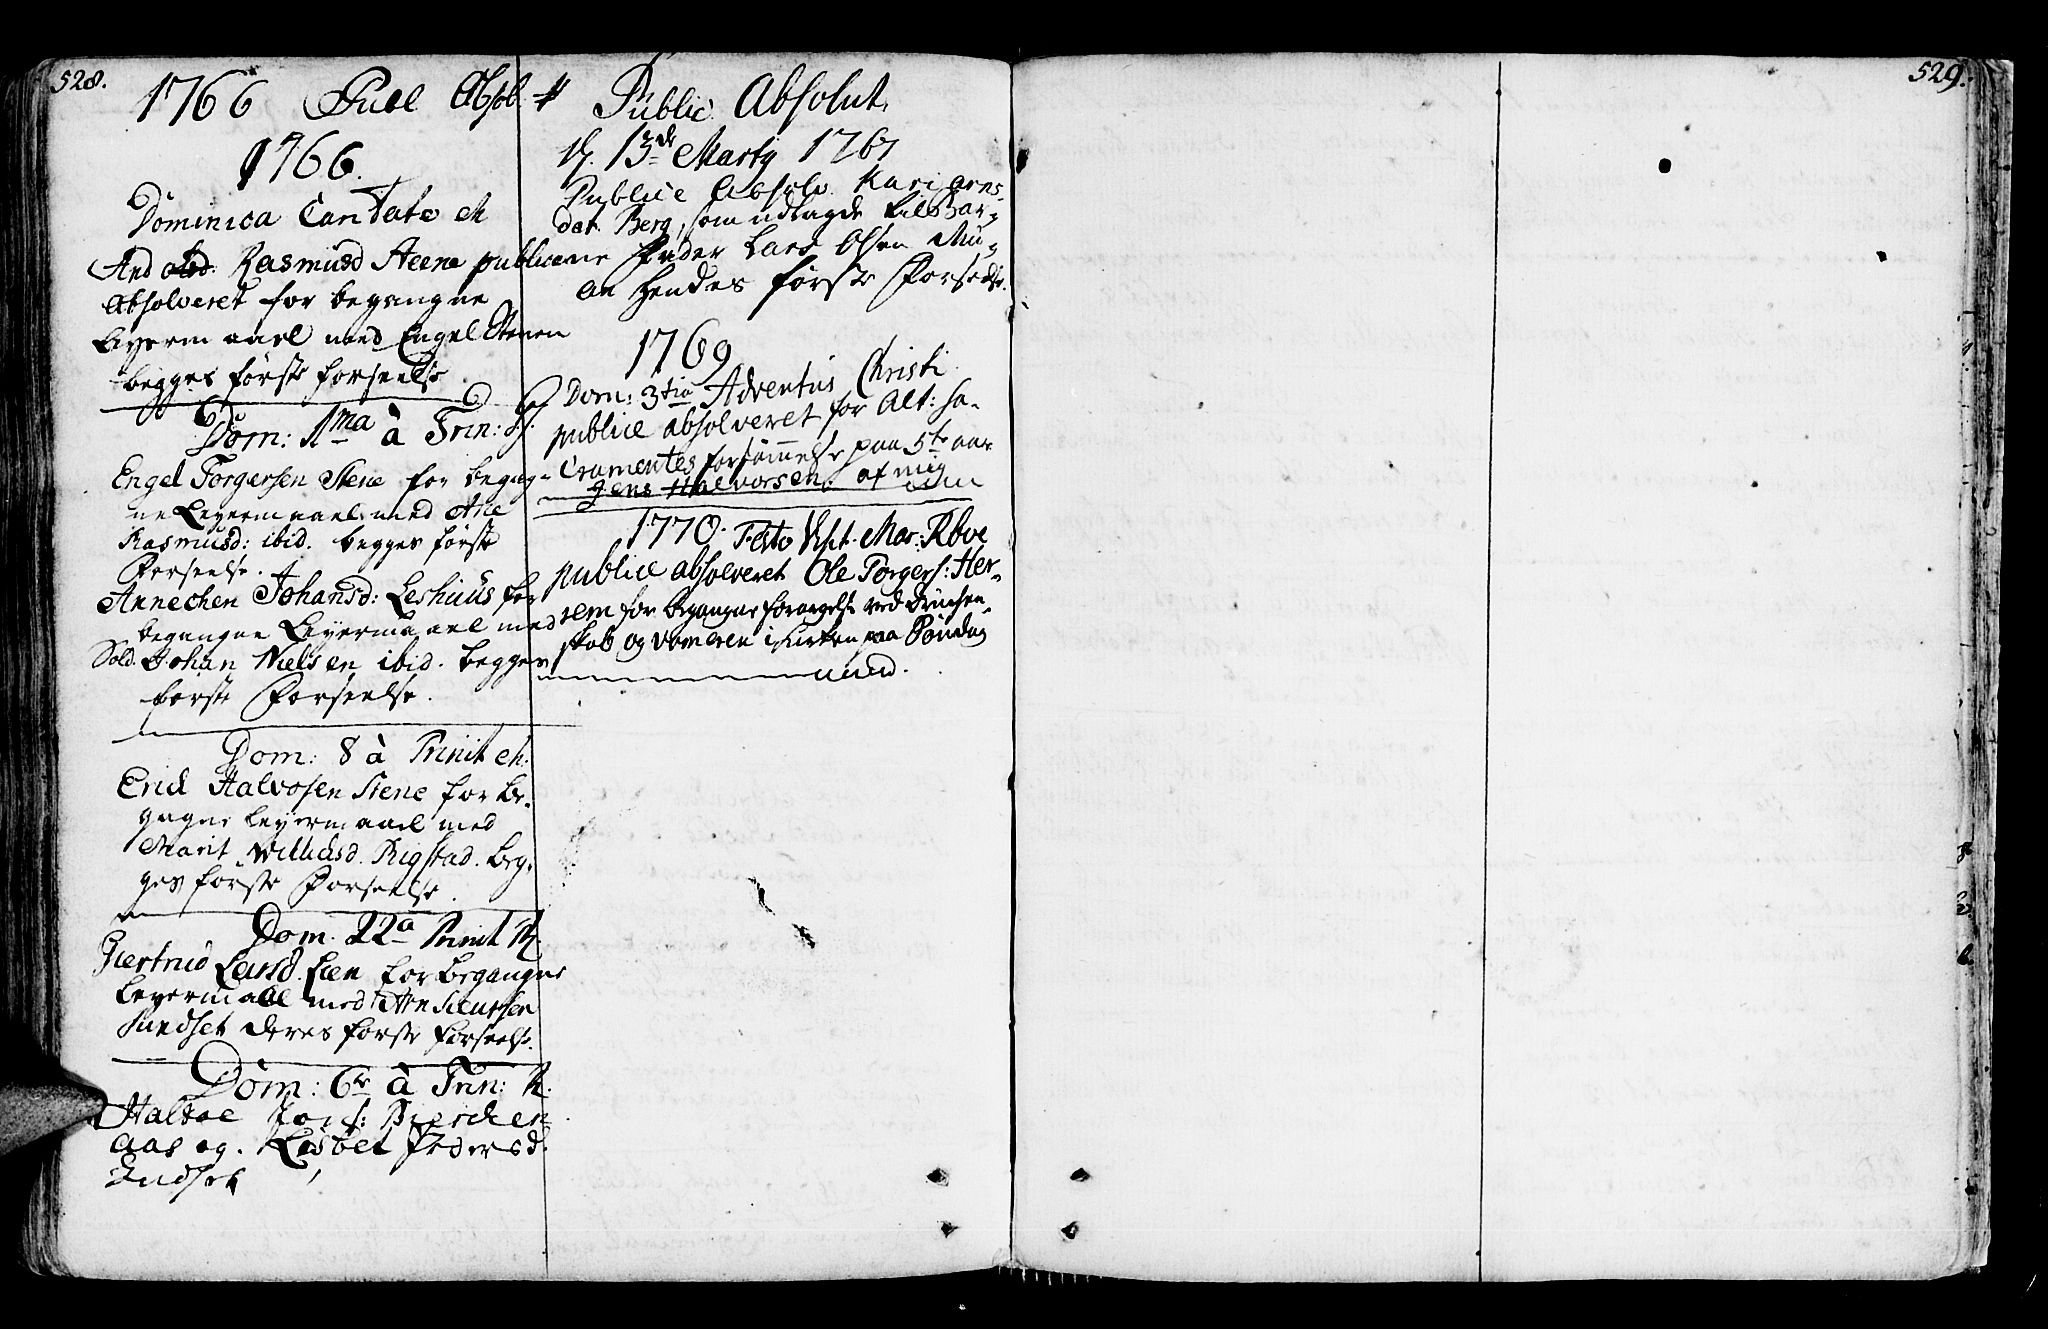 528.
1766 Publ Absol.
1766.
Dominica Cantate
Rasmusd Steene publice
Absolveret for begangne
Leyermaael med Engel Stenen
begges første forseelse
Dom: 1ma à Trin:
Engel Torgersen Stene for begag-
ne Leyermaael med Ane
Rasmusd: ibid. begges første
Forseelse.
Annechen Johansd: Leshuus for
begangne Leyermaael med
Sold. Johan Nielsen ibid. begges
første Forseelse.
Dom: 8 à Trinit
Erid Halvosen Stene for be-
gagne Leyermaael med
Marit Rigstad. beg-
ges første Forseelse.
Dom. 22 à Trinit
Giertrud Larsd. Lien for begangne
Leyermaael med
Sundset deres første forseelse.
Dom: 6te à Trin:
Aas og. Lisbet Pedersd.
Indset
Public. Absolut.
13de Martij 1767
Publice Absolv. Kari Arns-
dat. Berg, som udlagde til Bar-
ne Fader Lars Olsen
hendes første Forseelse.
1769
Dom: 3tia Adventus Christi
publice absolveret for Alt: Sa-
cramentes forsømmelse paa 5te aar
Jens Halvorsen af mig
1770. Festo Mar:
publice absolveret Ole Torgers: Her-
rem for begangne forargelse ved Drucken-
skab og i kirken paa Søndag
529.